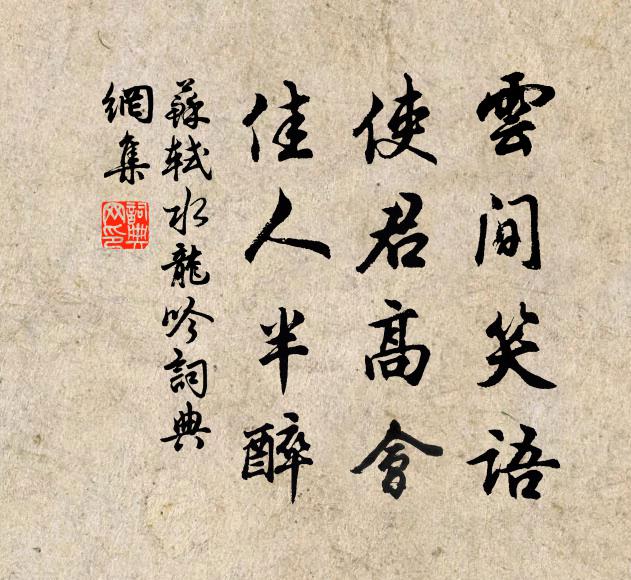 雲間笑語
使君高會
佳人半醉
蘇軾水龍吟詞典
網集
詞典
网印